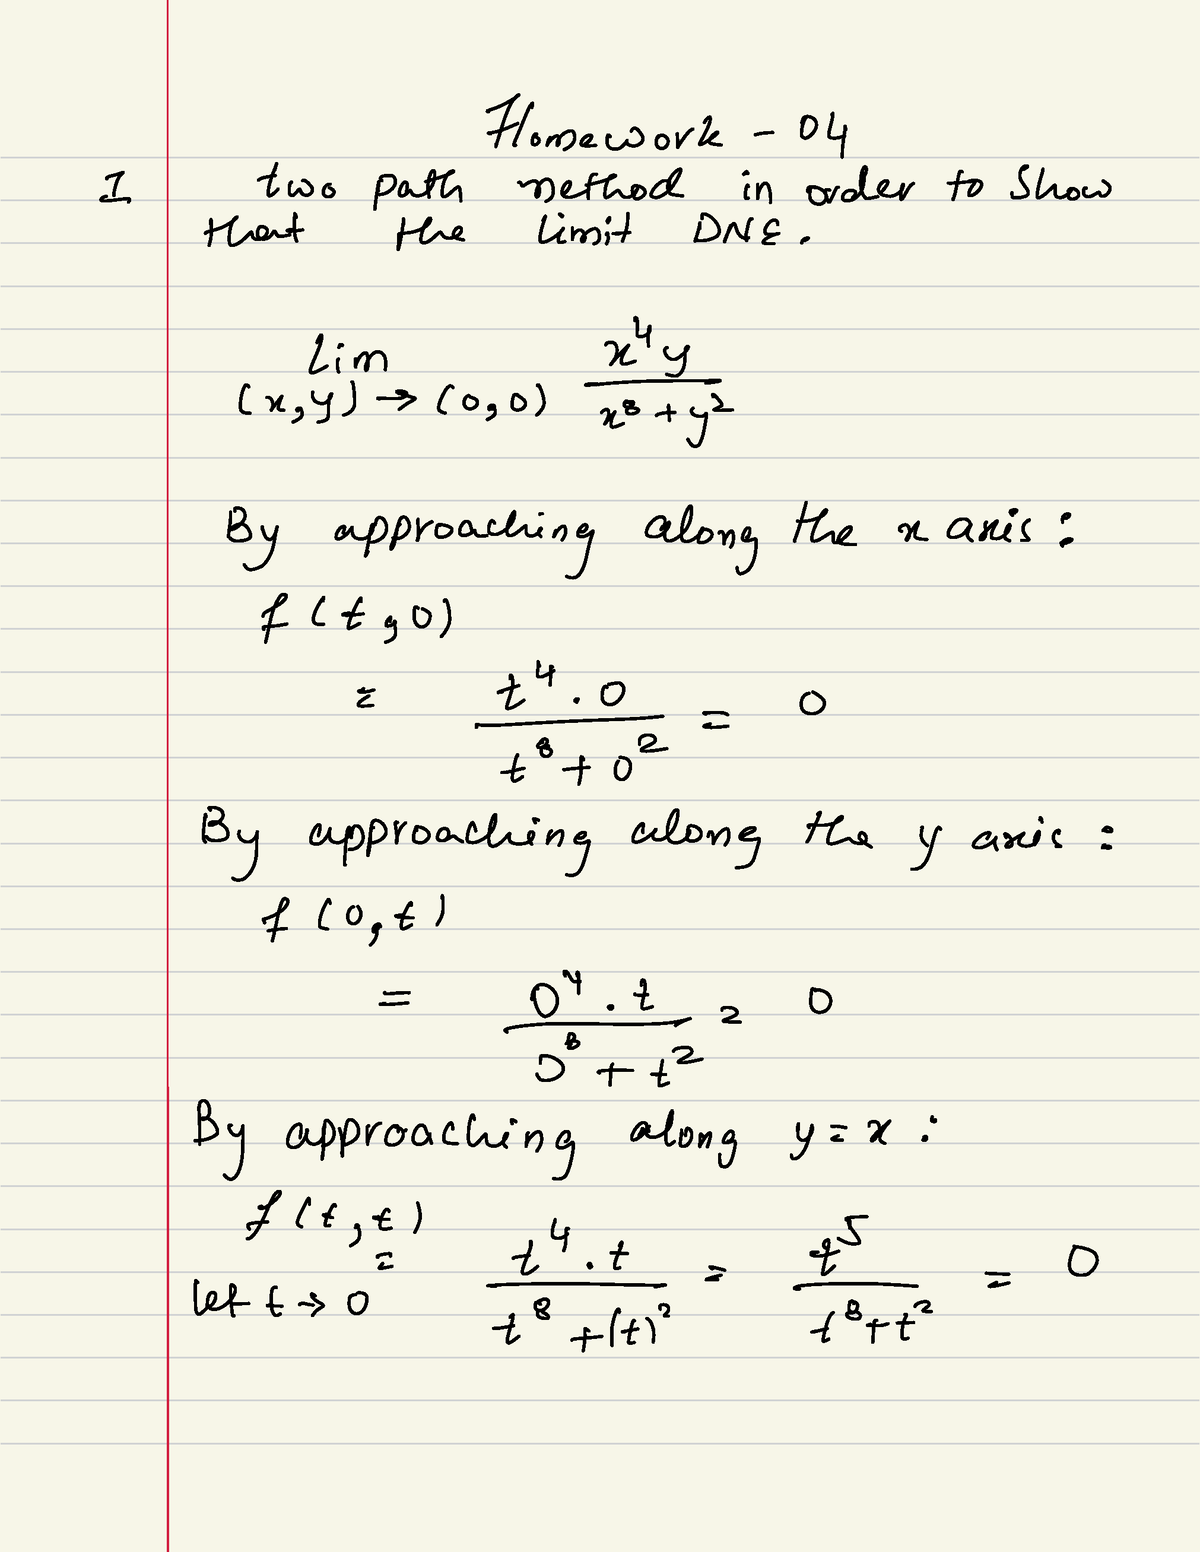 Homework - 04
1 two path method in order to show
that the limit DNE.
lim x⁴y
(x,y) → (0,0) x⁸ + y²
By approaching along the x axis :
f (t, 0)
= t⁴ . 0 / t⁸ + 0² = 0
By approaching along the y axis :
f (0, t)
= 0⁴ . t / 0⁸ + t² = 0
By approaching along y = x :
f (t, t)
= t⁴ . t / t⁸ + (t)² = t⁵ / t⁸ + t² = 0
let t → 0